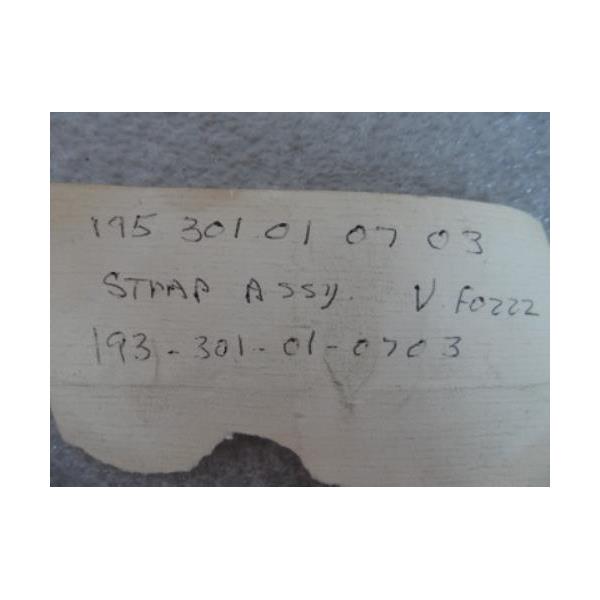 195 301 01 07 03
STRAP ASSY. V. F0222
193-301-01-0703